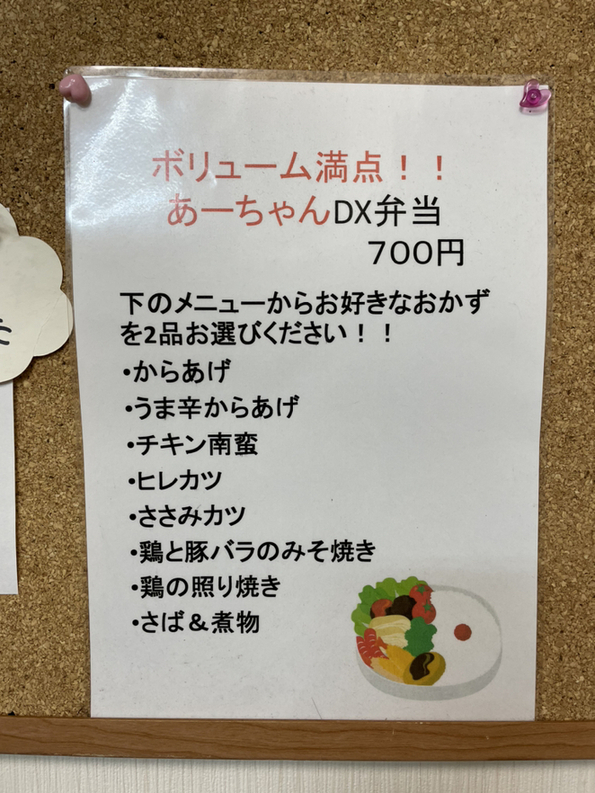 ボリューム満点！！
あーちゃんDX弁当
700円
下のメニューからお好きなおかず
を2品お選びください！！
•からあげ
•うま辛からあげ
•チキン南蛮
•ヒレカツ
•ささみカツ
•鶏と豚バラのみそ焼き
•鶏の照り焼き
•さば＆煮物